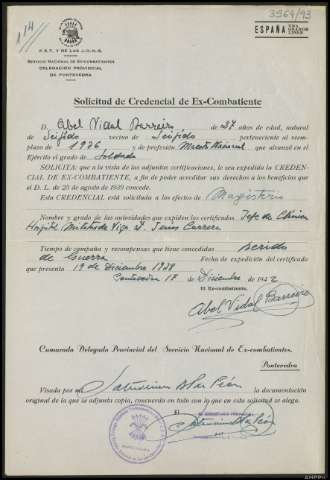 114
3964/43
ESPAÑA
F. E. T. Y DE LAS J. O. N. S.
SERVICIO NACIONAL DE EX-COMBATIENTES
DELEGACION PROVINCIAL
DE PONTEVEDRA
Solicitud de Credencial de Ex-Combatiente
D. Abel Vidal Barreiro de 37 años de edad, natural
de Teijido vecino de Teijido perteneciente al reem-
plazo de 1926 y de profesión Maestro Nacional que alcanzó en el
Ejército el grado de Soldado
SOLICITA: que a la vista de las adjuntas certificaciones, le sea expedida la CREDEN-
CIAL DE EX-COMBATIENTE, a fin de poder acreditar sus derechos a los beneficios que
el D. L. de 25 de agosto de 1939 concede.
Esta CREDENCIAL está solicitada a efectos de Magisterio
Nombre y grado de las autoridades que expiden los certificados Jefe de Clínica
Hospital Militar de Vigo D. Jesus Carrero
Tiempo de campaña y recompensas que tiene concedidas herido
de Guerra Fecha de expedición del certificado
que presenta 19 de Diciembre 1938
Pontevedra 17 de Diciembre de 1942
El Ex-combatiente,
Abel Vidal Barreiro
Camarada Delegado Provincial del Servicio Nacional de Ex-combatientes.
Pontevedra
Visada por mi la documentación
original de la que se adjunta copia, concuerda en todo con lo que en esta solicitud se alega.
El
AHPPO